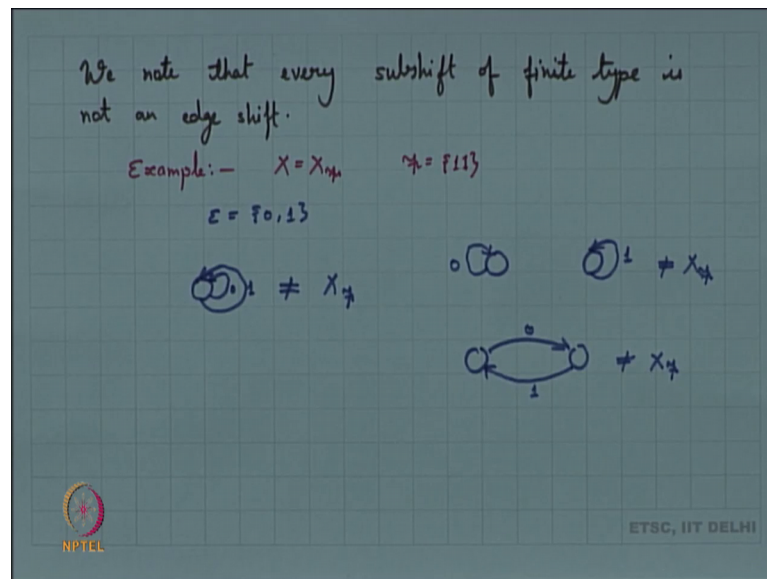 We note that every subshift of finite type is
not an edge shift.
Example:- X = X_F F = {11}
Ɛ = {0,1}
0 1 ≠ X_F
0 1 ≠ X_F
0
≠ X_F
1
NPTEL
ETSC, IIT DELHI